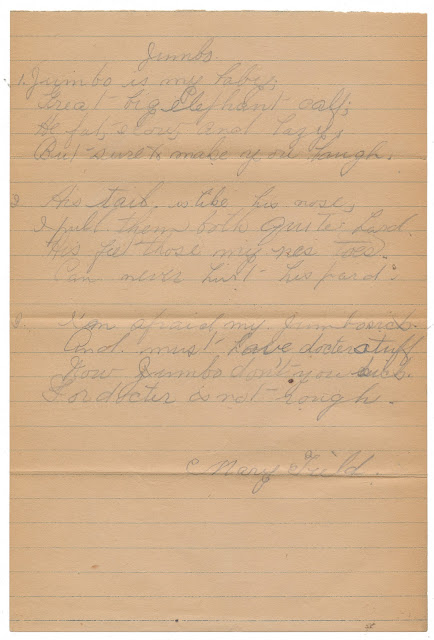 Jumbo.
1. Jumbo is my baby,
Great big Elephant calf;
He fat, slow, and lazy,
But sure to make you laugh.
2 His tail is like his nose,
I pull them both quite hard.
His feet those my toes
Can never hurt his pard.
3. I'm afraid my Jumbo sick.
And must have docter stuff
Now Jumbo don't you
For docter is not rough.
Mary Feild.